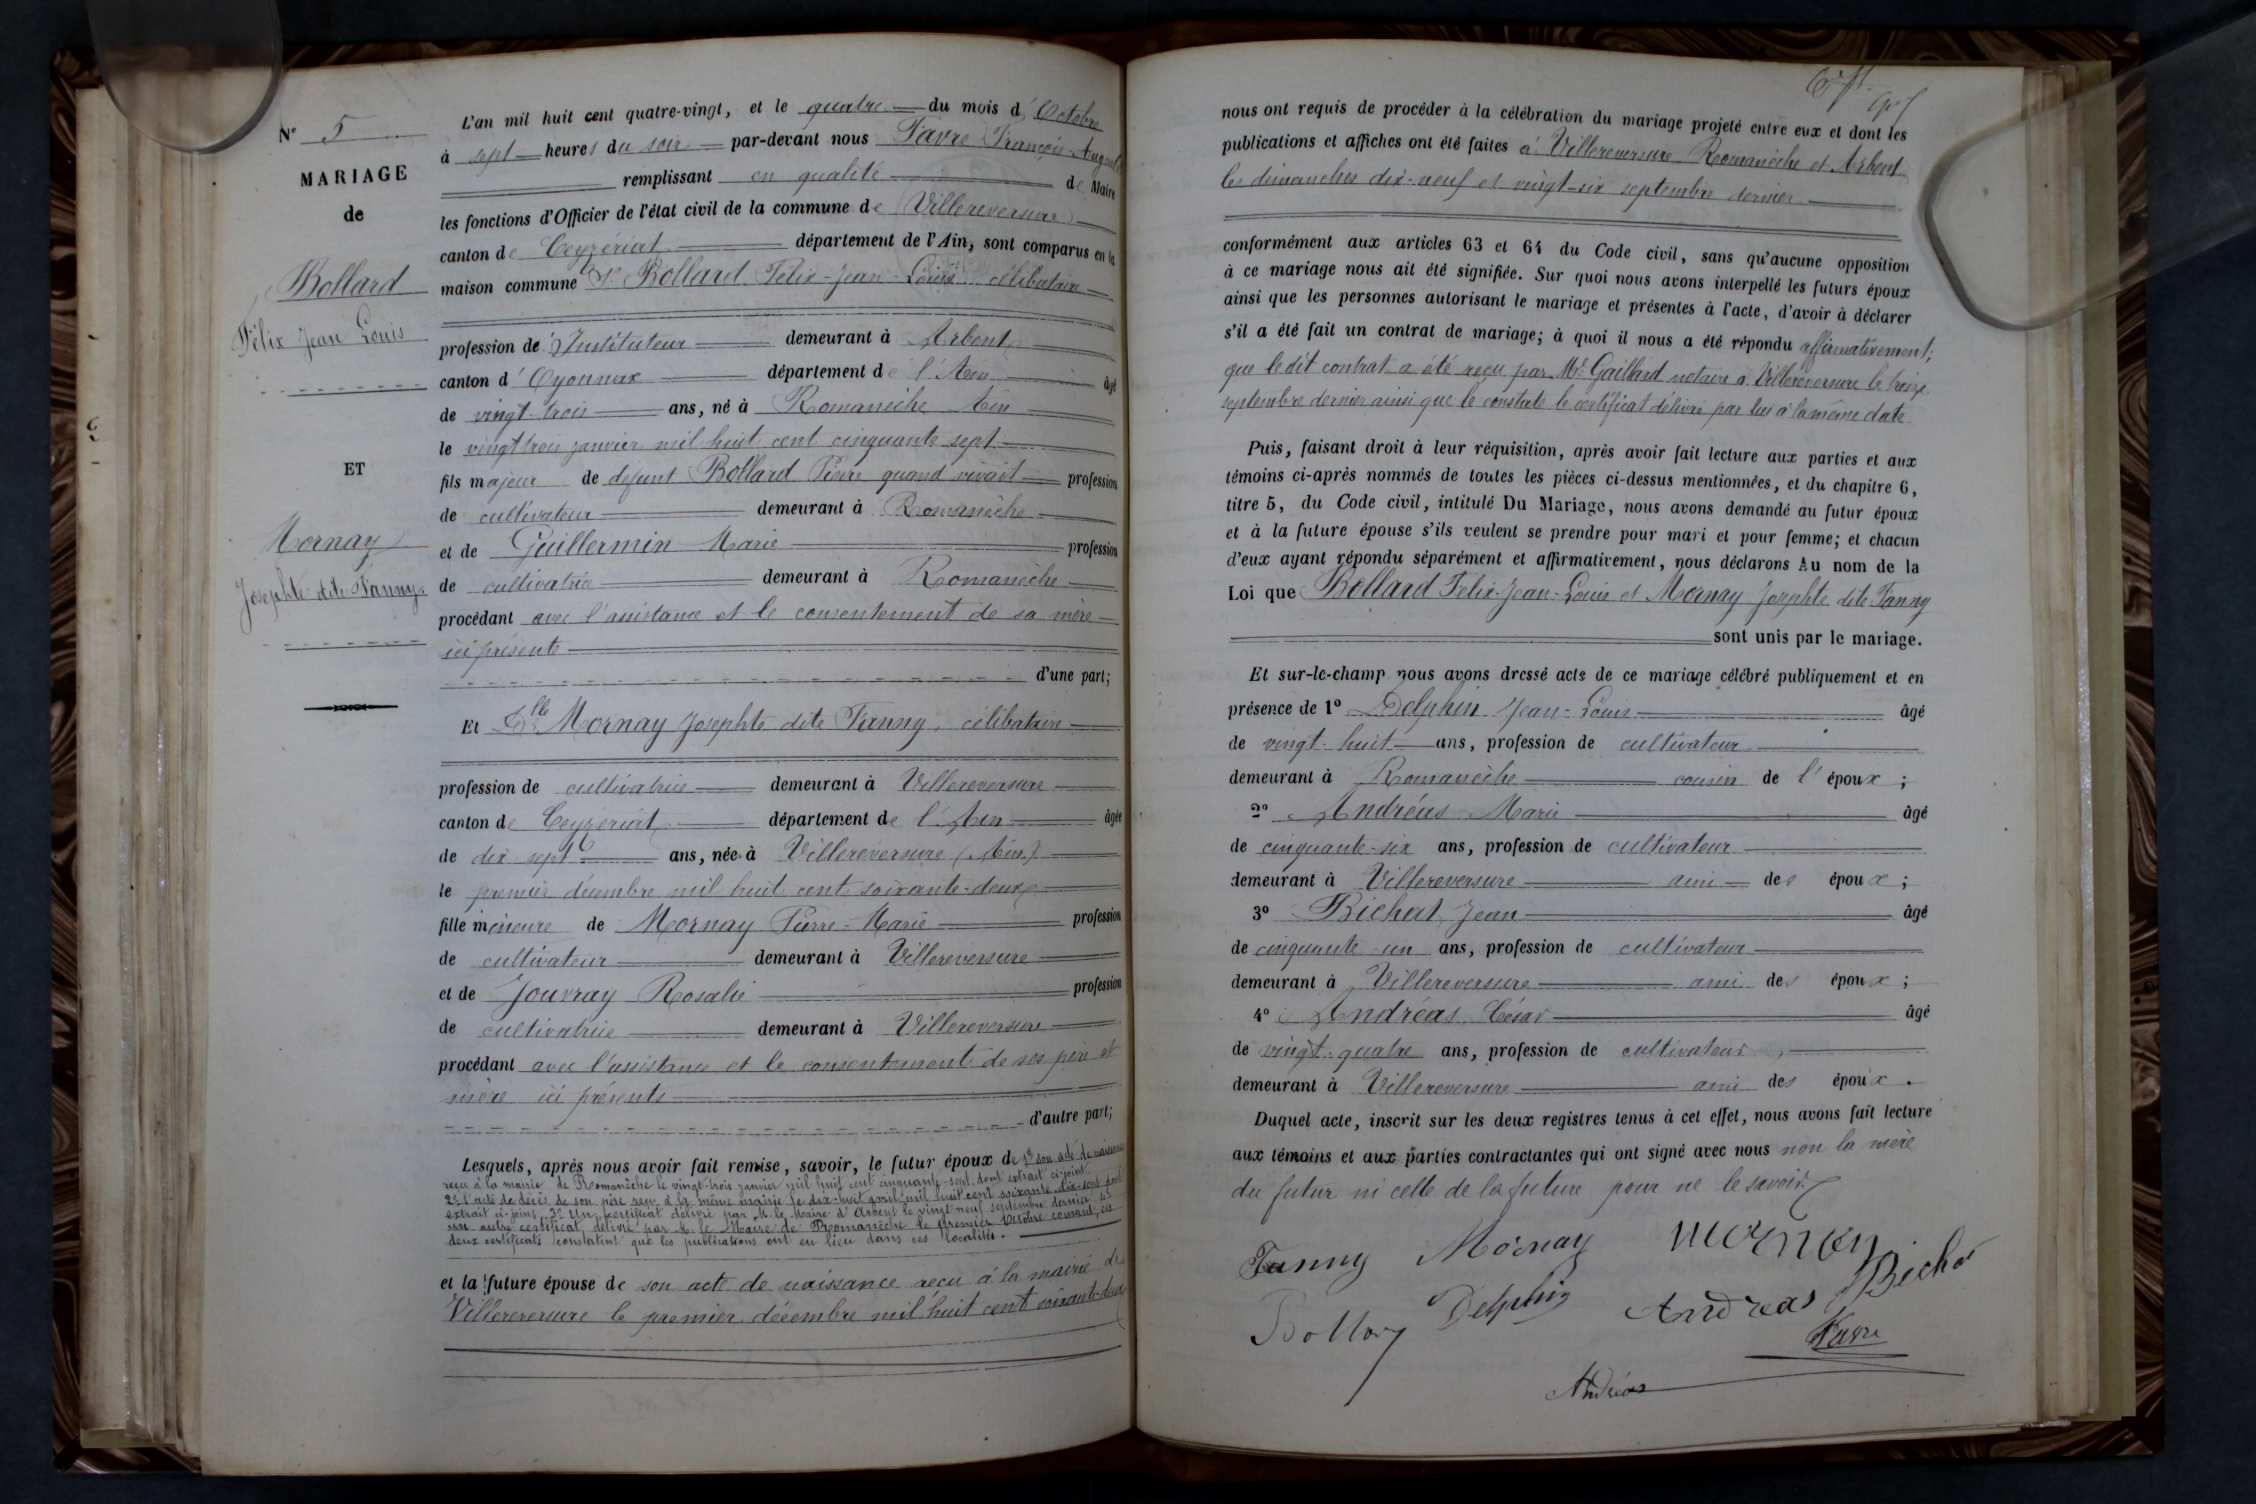 N° 5
MARIAGE
de
Bollard
Félix Jean Louis
ET
Mornay
Josephte dite Fanny
L'an mil huit cent quatre-vingt, et le quatre du mois d'Octobre
à sept heures du soir par-devant nous Favre François Auguste
remplissant en qualité de Maire
les fonctions d'Officier de l'état civil de la commune de Villereversure
canton de Ceyzériat département de l'Ain, sont comparus en la
maison commune Sr Bollard Felix-Jean-Louis célibataire
profession de Instituteur demeurant à Arbent
canton d'Oyonnax département de l'Ain âgé
de vingt-trois ans, né à Romanèche Ain
le vingt trois janvier mil huit cent cinquante sept
fils majeur de defunt Bollard Pierre quand vivait profession
de cultivateur demeurant à Romanèche
et de Guillermin Marie profession
de cultivatrice demeurant à Romanèche
procédant avec l'assistance et le consentement de sa mère
ici présente
d'une part;
Et Dlle Mornay Josephte dite Fanny, célibataire
profession de cultivatrice demeurant à Villereversure
canton de Ceyzériat département de l'Ain âgée
de dix sept ans, née à Villereversure (Ain)
le premier décembre mil huit cent soixante-deux
fille mineure de Mornay Pierre-Marie profession
de cultivateur demeurant à Villereversure
et de Jouvray Rosalie profession
de cultivatrice demeurant à Villereversure
procédant avec l'assistance et le consentement de ses père et
mère ici présents
d'autre part;
Lesquels, après nous avoir fait remise, savoir, le futur époux de 1° son acte de naissance
reçu à la mairie de Romanèche le vingt-trois janvier mil huit cent cinquante-sept dont extrait ci-joint
2° l'acte de décès de son père reçu à la même mairie le dix-huit avril mil huit cent soixante dix-sept dont
extrait ci-joint 3° Un certificat délivré par M. le Maire d'Arbent le vingt neuf septembre dernier 4°
un autre certificat délivré par M. le Maire de Romanèche le premier Octobre courant, ces
deux certificats constatent que les publications ont eu lieu dans ces localités.
et la future épouse de son acte de naissance reçu à la mairie de
Villereversure le premier décembre mil huit cent soixante-deux
nous ont requis de procéder à la célébration du mariage projeté entre eux et dont les
publications et affiches ont été faites à Villereversure Romanèche et Arbent
les dimanches dix-neuf et vingt-six septembre dernier
conformément aux articles 63 et 64 du Code civil, sans qu'aucune opposition
à ce mariage nous ait été signifiée. Sur quoi nous avons interpellé les futurs époux
ainsi que les personnes autorisant le mariage et présentes à l'acte, d'avoir à déclarer
s'il a été fait un contrat de mariage; à quoi il nous a été répondu affirmativement;
que ledit contrat a été reçu par Me Gaillard notaire à Villereversure le treize
septembre dernier ainsi que le constate le certificat délivré par lui à la même date
Puis, faisant droit à leur réquisition, après avoir fait lecture aux parties et aux
témoins ci-après nommés de toutes les pièces ci-dessus mentionnées, et du chapitre 6,
titre 5, du Code civil, intitulé Du Mariage, nous avons demandé au futur époux
et à la future épouse s'ils veulent se prendre pour mari et pour femme; et chacun
d'eux ayant répondu séparément et affirmativement, nous déclarons Au nom de la
Loi que Bollard Felix-Jean-Louis et Mornay Josephte dite Fanny
sont unis par le mariage.
Et sur-le-champ nous avons dressé acte de ce mariage célébré publiquement et en
présence de 1° Delphin Jean-Louis âgé
de vingt-huit ans, profession de cultivateur
demeurant à Romanèche cousin de l'époux;
2° Andréas Marie âgé
de cinquante-six ans, profession de cultivateur
demeurant à Villereversure ami des époux;
3° Bichat Jean âgé
de cinquante un ans, profession de cultivateur
demeurant à Villereversure ami des époux;
4° Andréas César âgé
de vingt-quatre ans, profession de cultivateur
demeurant à Villereversure ami des époux.
Duquel acte, inscrit sur les deux registres tenus à cet effet, nous avons fait lecture
aux témoins et aux parties contractantes qui ont signé avec nous non la mère
du futur ni celle de la future pour ne le savoir.
Fanny Mornay Mornay
Bichat
Bollard Delphin Andréas
Favre
Andréas